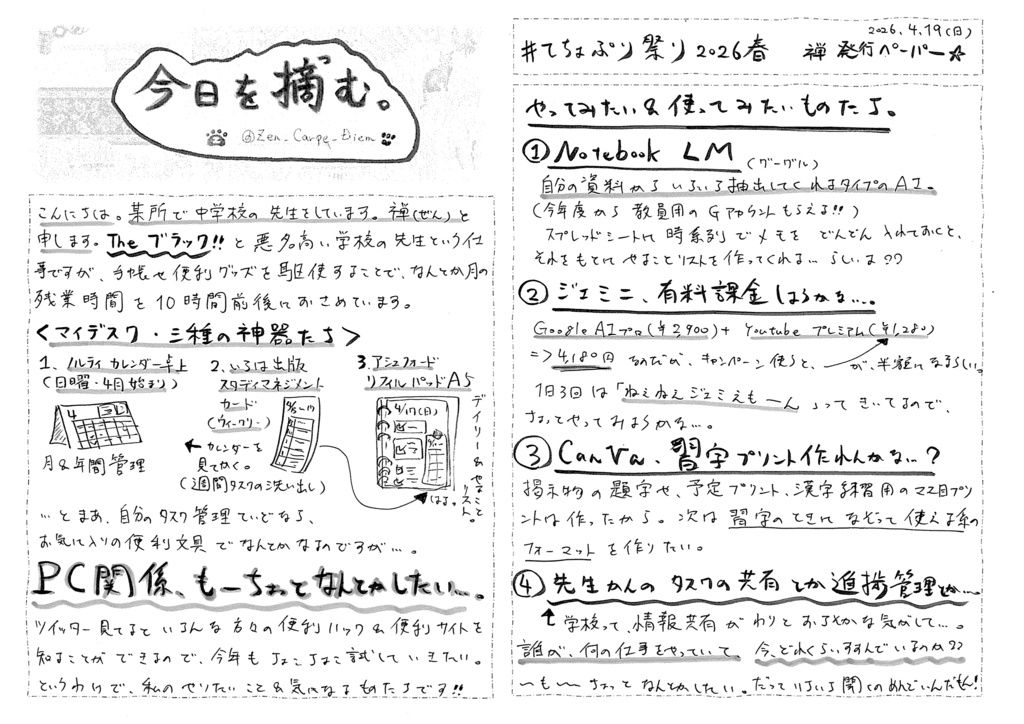 今日を摘む。
@Zen_Carpe_Diem
こんにちは。某所で中学校の先生をしています。禅(ぜん)と
申します。The ブラック!!と悪名高い学校の先生という仕
事ですが、手帳や便利グッズを駆使することで、なんとか月の
残業時間を10時間前後におさめています。
<マイデスク・三種の神器たち>
1、ノルティカレンダー卓上
(日曜・4月始まり)
4
月&年間管理
2、いろは出版
スタディマネジメント
カード
(ウィークリー)
←カレンダーを
見てかく。
(週間タスクの洗い出し)
3、アシュフォード
リフィルパッドA5
4/19(日)
デイリー&やること
リスト。
はる。
…とまあ、自分のタスク管理ていどなら、
お気に入りの便利文具でなんとかなるのですが…。
PC関係、もーちょっとなんとかしたい…。
ツイッター見てるといろんな方々の便利ハック&便利サイトを
知ることができるので、今年もちょこちょこ試していきたい。
というわけで、私のやりたいこと&気になるものたちです!!
2026.4.19(日)
#てちょぷり祭り2026春 禅 発行ペーパー☆
やってみたい&使ってみたいものたち。
① Notebook LM (グーグル)
自分の資料からいろいろ抽出してくれるタイプのAI。
(今年度から教員用のGアカウントもらえる!!)
スプレッドシートに時系列でメモをどんどん入れておくと、
それをもとにやることリストを作ってくれる…らしいよ??
② ジェミニ、有料課金しようかな…。
Google AIプロ(¥2,900)+Youtubeプレミアム(¥1,280)
=>4,180円なのだが、キャンペーン使うと、が、半額になるらしい。
1日3回は「ねぇねぇジェミえもーん」ってきいてるので、
ちょってやってみようかな…。
③ CanVa、習字プリント作れんかな…?
掲示物の題字や、予定プリント、漢字練習用のマス目プリ
ントは作ったから。次は習字のときになぞって使える系の
フォーマットを作りたい。
④ 先生かんのタスクの共有とか進捗管理とか…
↑学校って、情報共有がわりとおろそかな気がして…。
誰が、何の仕事をやっていて、今、どれくらいすすんでいるのか??
〜も〜ちょっとなんとかしたい。だっていちいち聞くのめんどいんだもん!